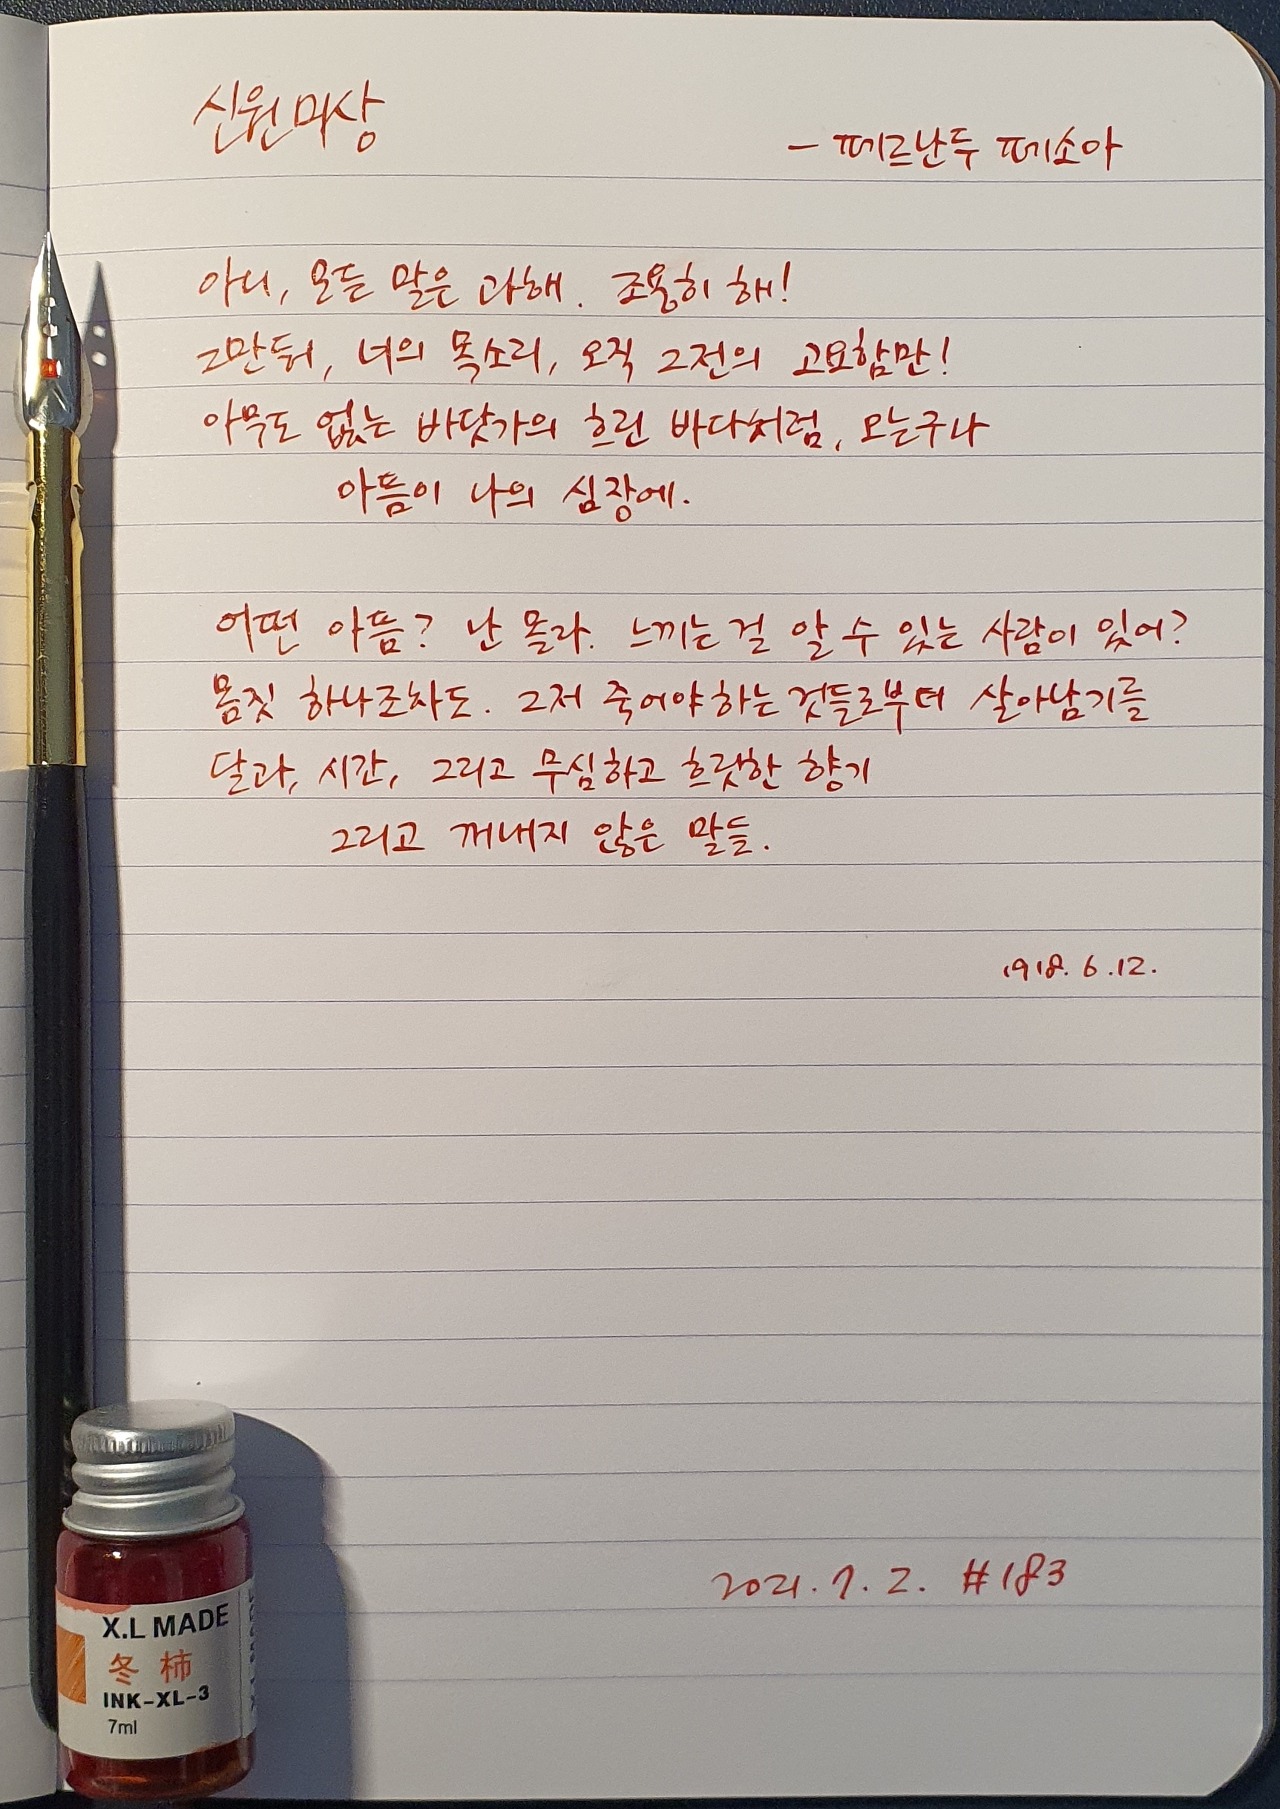 신원미상
- 페르난두 페소아
아니, 모든 말은 과해. 조용히 해!
그만둬, 너의 목소리, 오직 그전의 고요함만!
아무도 없는 바닷가의 흐린 바다처럼, 오는구나
아픔이 나의 심장에.
어떤 아픔? 난 몰라. 느끼는 걸 알 수 있는 사람이 있어?
몸짓 하나조차도. 그저 죽어야 하는 것들로부터 살아남기를
달과, 시간, 그리고 무심하고 흐릿한 향기
그리고 꺼내지 않은 말들.
1918. 6. 12.
2021. 7. 2. #183
X.L MADE
冬 柿
INK-XL-3
7ml